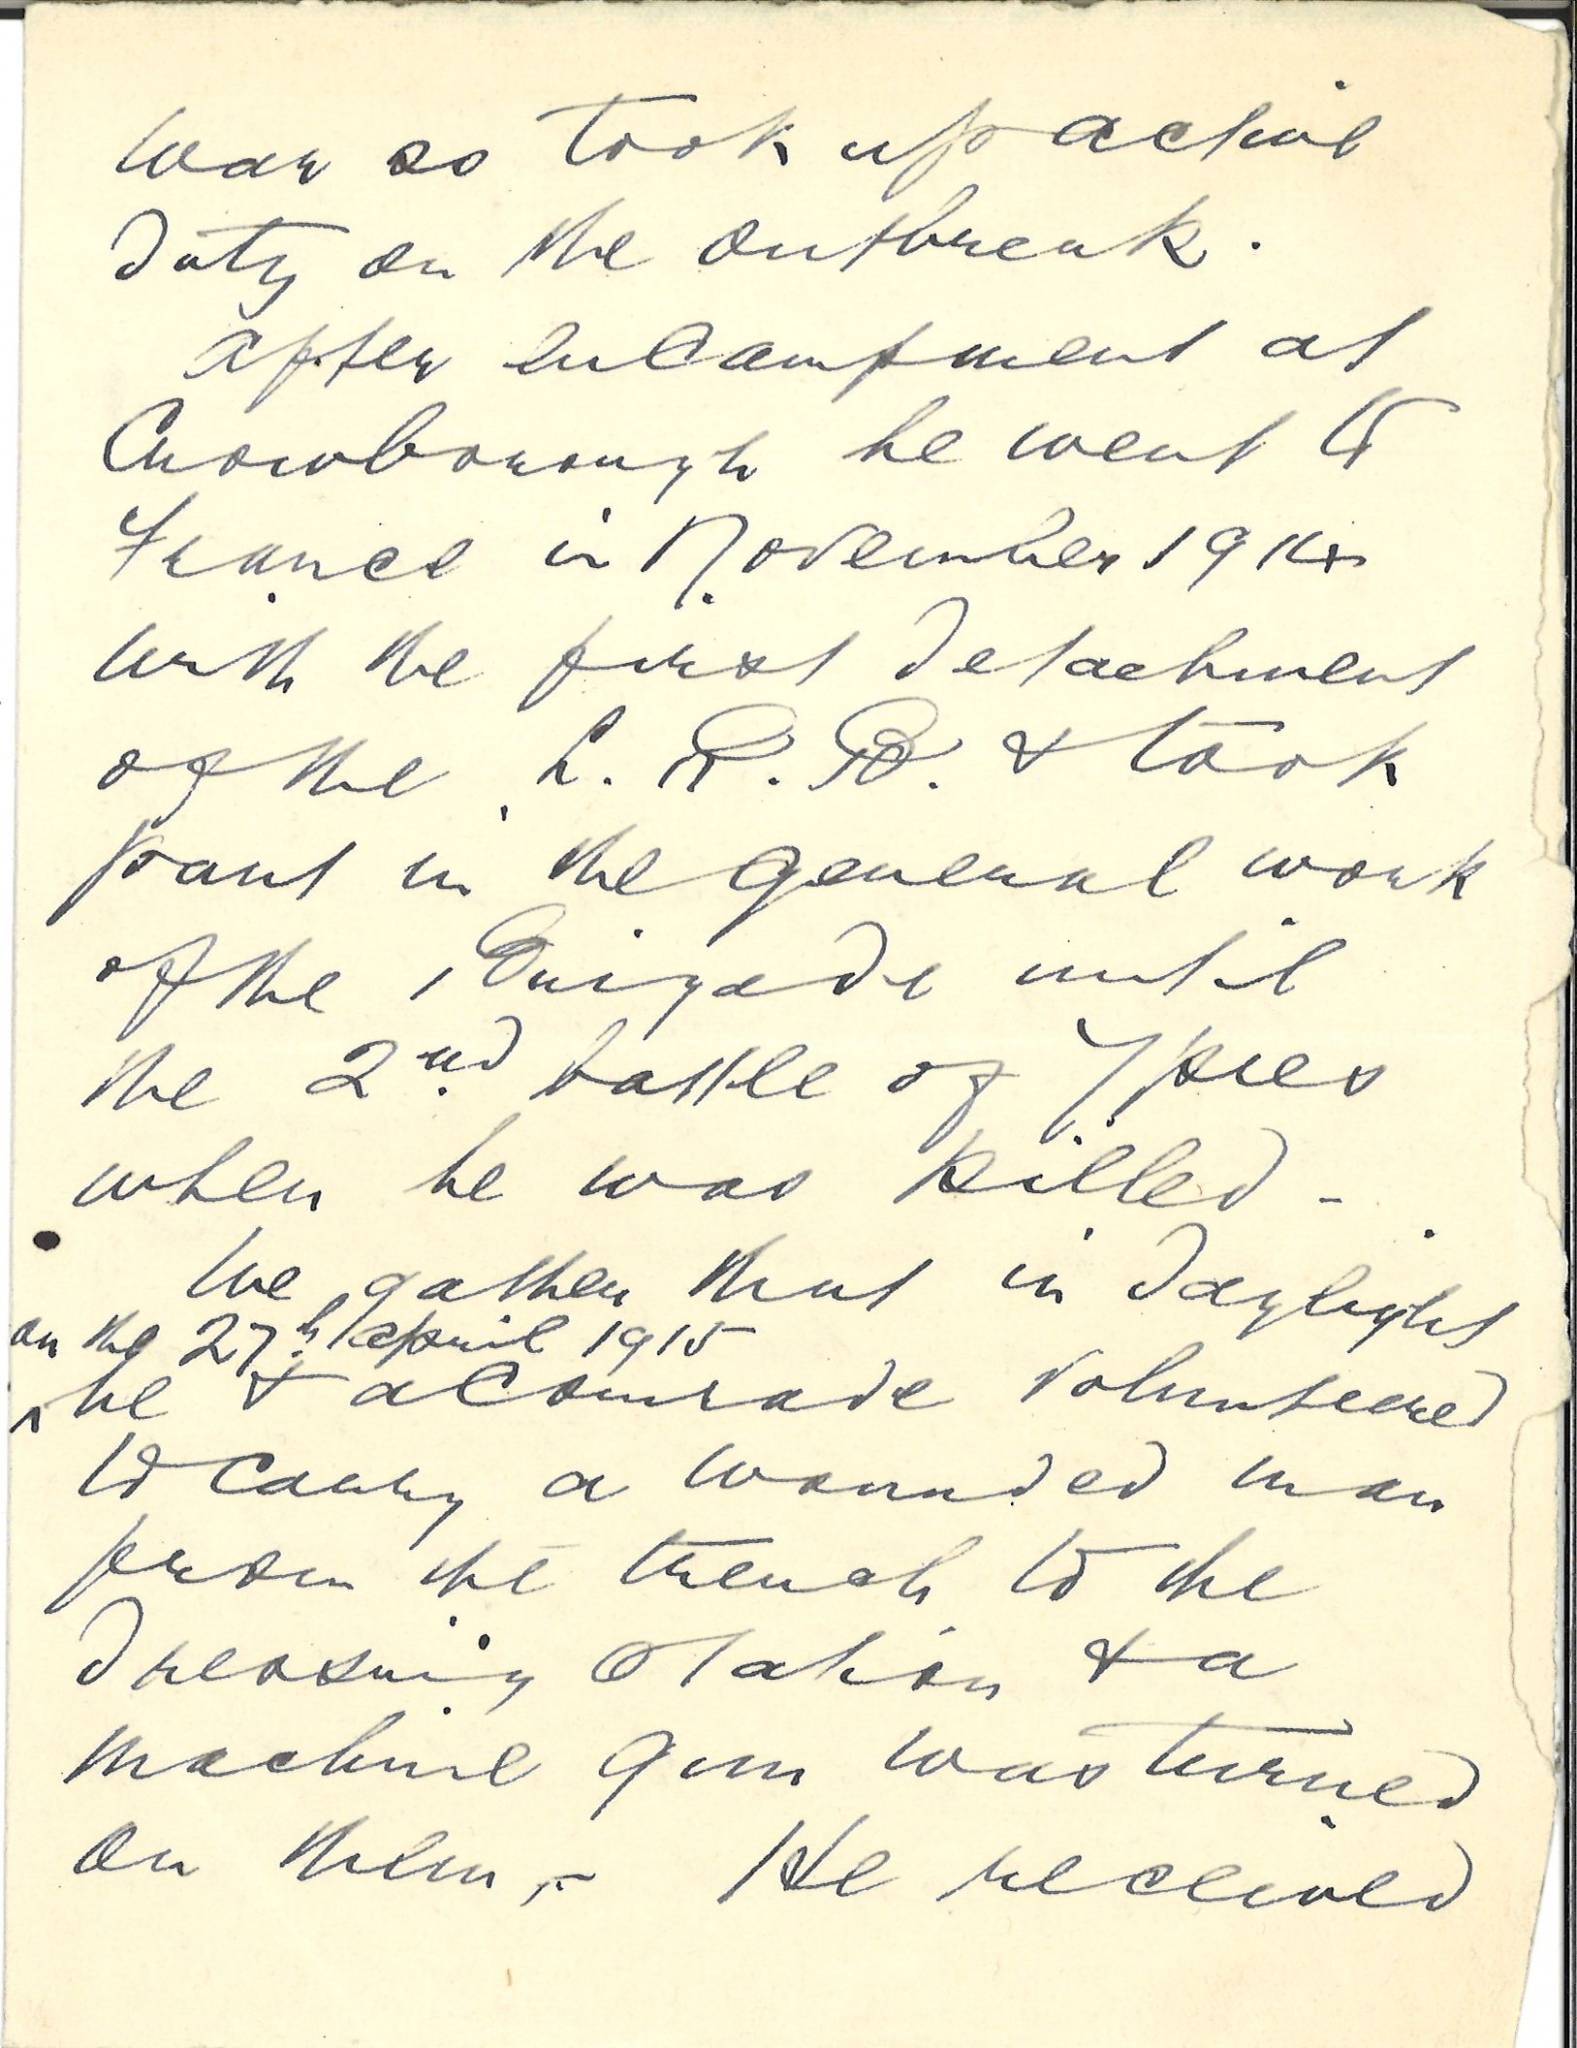 war so took up active
duty on the outbreak.
After encampment at
Crowborough he went to
France in November 1914
with the first detachment
of the L. R. B. & took
part in the general work
of the Brigade until
the 2nd battle of Ypres
when he was killed -
We gather that in daylight
on the 27th April 1915
he & a Comrade volunteered
to carry a wounded man
from the trench to the
dressing station & a
machine gun was turned
on them. - He received